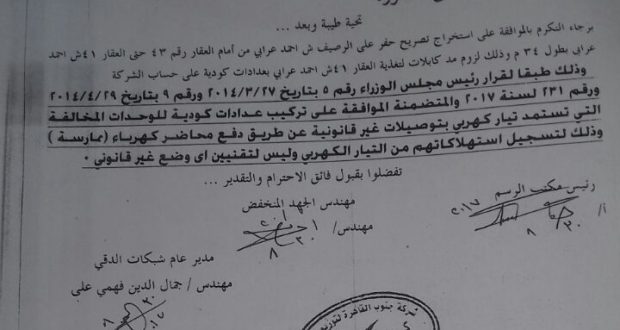 تحية طيبة وبعد ...
برجاء التكرم بالموافقة على استخراج تصريح حفر على الرصيف ش احمد عرابي من أمام العقار رقم ٤٣ حتى العقار ٤١ ش احمد
عرابي بطول ٣٤ م وذلك لزوم مد كابلات لتغذية العقار ٤١ ش احمد عرابي بعدادات كودية على حساب الشركة
وذلك طبقا لقرار رئيس مجلس الوزراء رقم ٥ بتاريخ ٢٠١٤/٣/٢٧ ورقم ٩ بتاريخ ٢٠١٤/٤/٢٩
ورقم ٢٣١ لسنة ٢٠١٧ والمتضمنة الموافقة على تركيب عدادات كودية للوحدات المخالفة
التي تستمد تيار كهربي بتوصيلات غير قانونية عن طريق دفع محاضر كهرباء ( ممارسة )
وذلك لتسجيل استهلاكاتهم من التيار الكهربي وليس لتقنيين اى وضع غير قانوني .
تفضلوا بقبول فائق الاحترام والتقدير ...
رئيس مكتب الرسم
مهندس الجهد المنخفض
٢٠١٧
أ/
مهندس/
٨
٣٠
٨
٣٠
مدير عام شبكات الدقي
مهندس / جمال الدين فهمي على
شركة جنوب القاهرة لتوزيع